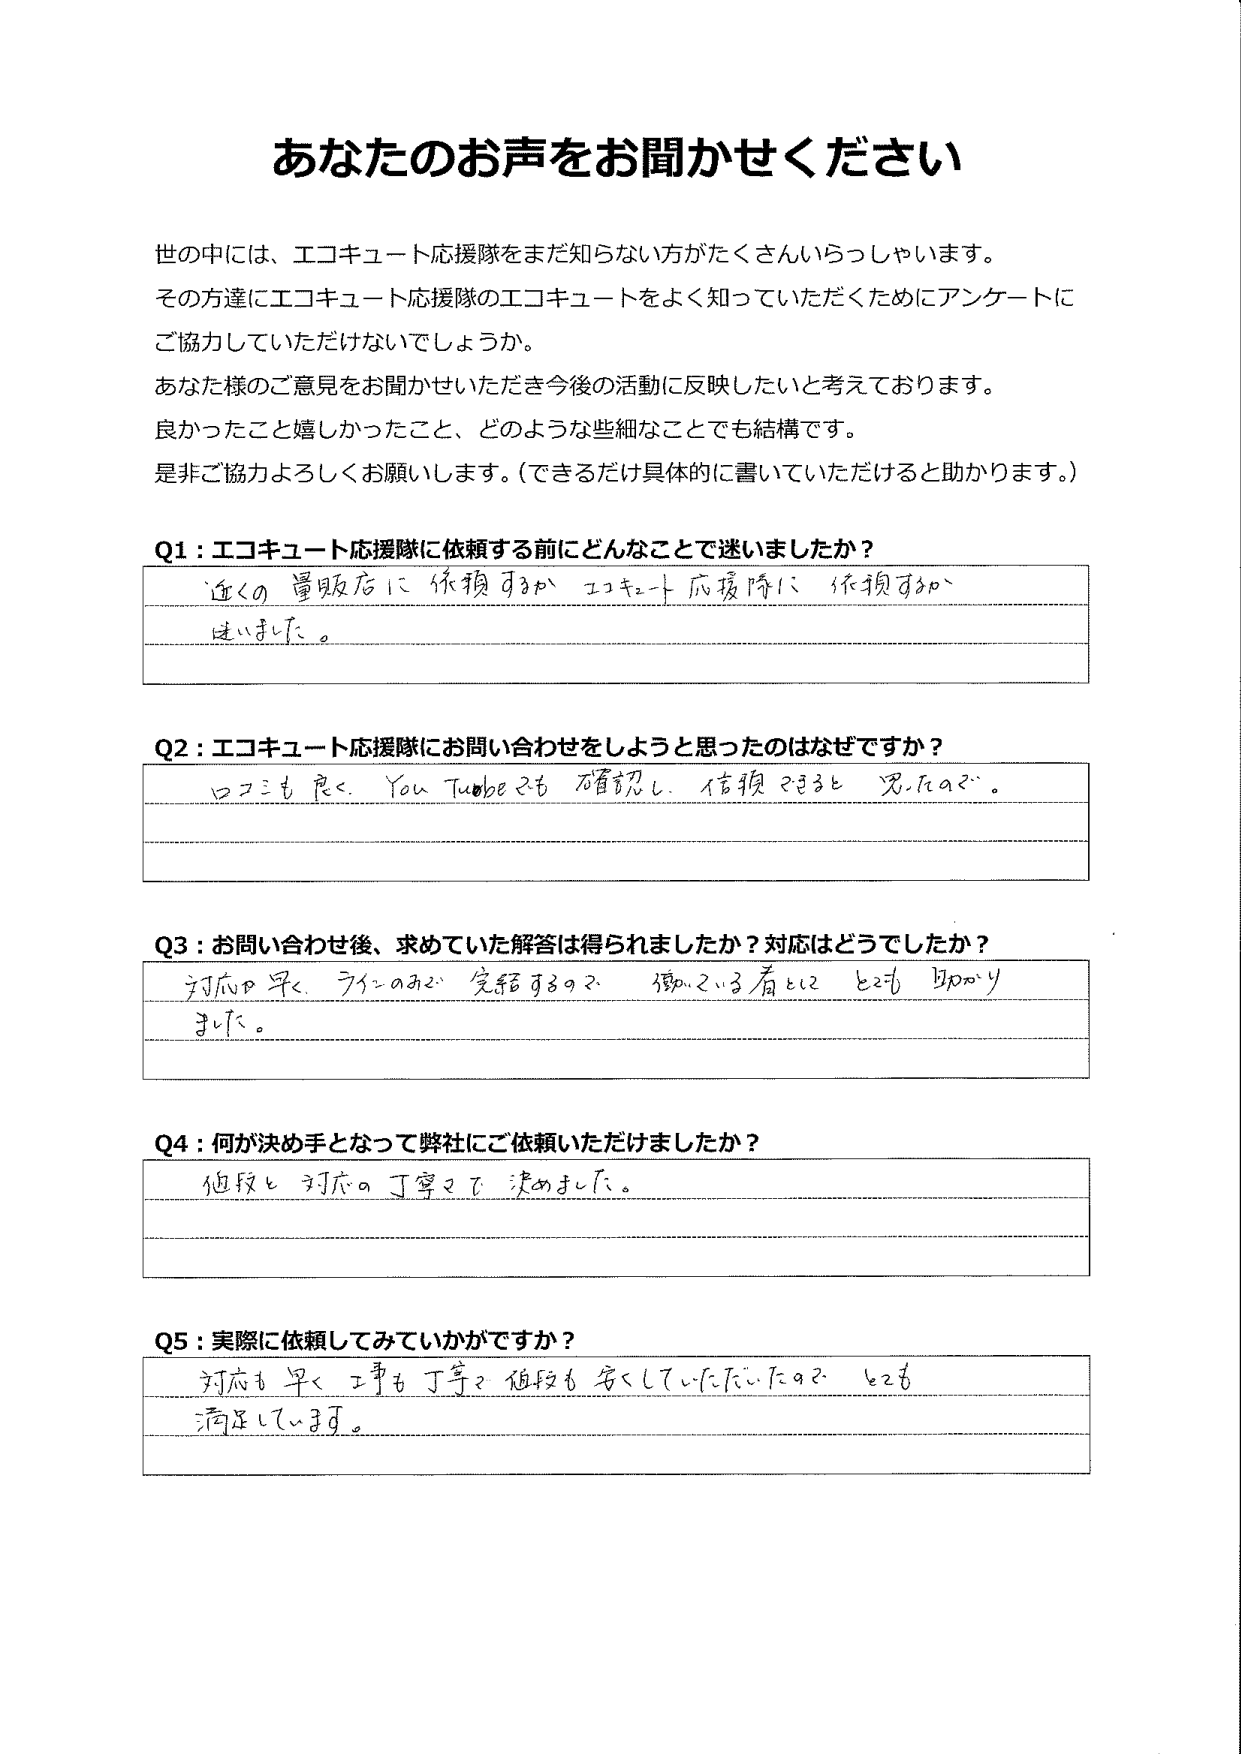 あなたのお声をお聞かせください
世の中には、エコキュート応援隊をまだ知らない方がたくさんいらっしゃいます。
その方達にエコキュート応援隊のエコキュートをよく知っていただくためにアンケートに
ご協力していただけないでしょうか。
あなた様のご意見をお聞かせいただき今後の活動に反映したいと考えております。
良かったこと嬉しかったこと、どのような些細なことでも結構です。
是非ご協力よろしくお願いします。（できるだけ具体的に書いていただけると助かります。）
Q1：エコキュート応援隊に依頼する前にどんなことで迷いましたか？
近くの 量販店に 依頼するか エコキュート応援隊に 依頼するか
迷いました。
Q2：エコキュート応援隊にお問い合わせをしようと思ったのはなぜですか？
口コミも良く、You Tubeでも 確認し、信頼できると 思ったので。
Q3：お問い合わせ後、求めていた解答は得られましたか？対応はどうでしたか？
対応や早く、ラインのみで 完結するので 働いている者として とても 助かり
ました。
Q4：何が決め手となって弊社にご依頼いただけましたか？
値段と 対応の 丁寧さで 決めました。
Q5：実際に依頼してみていかがですか？
対応も 早く 工事も 丁寧で 値段も 安くしていただいたので とても
満足しています。